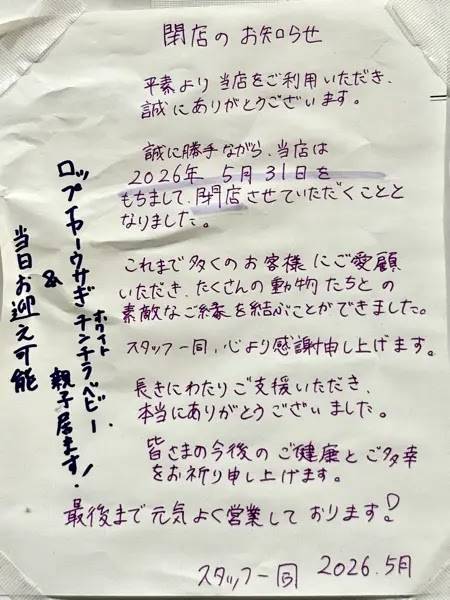 閉店のお知らせ
平素より当店をご利用いただき、
誠にありがとうございます。
誠に勝手ながら、当店は
2026年 5月 31日を
もちまして、閉店させていただくことと
なりました。
これまで多くのお客様にご愛顧
いただき、たくさんの動物たちとの
素敵なご縁を結ぶことができました。
スタッフ一同、心より感謝申し上げます。
長きにわたりご支援いただき、
本当にありがとうございました。
皆さまの今後のご健康とご多幸
をお祈り申し上げます。
最後まで元気よく営業しております!
スタッフ一同 2026.5月
ロップイヤーウサギ
&
ホワイト
チンチラベビー、親子居ます!
当日お迎え可能